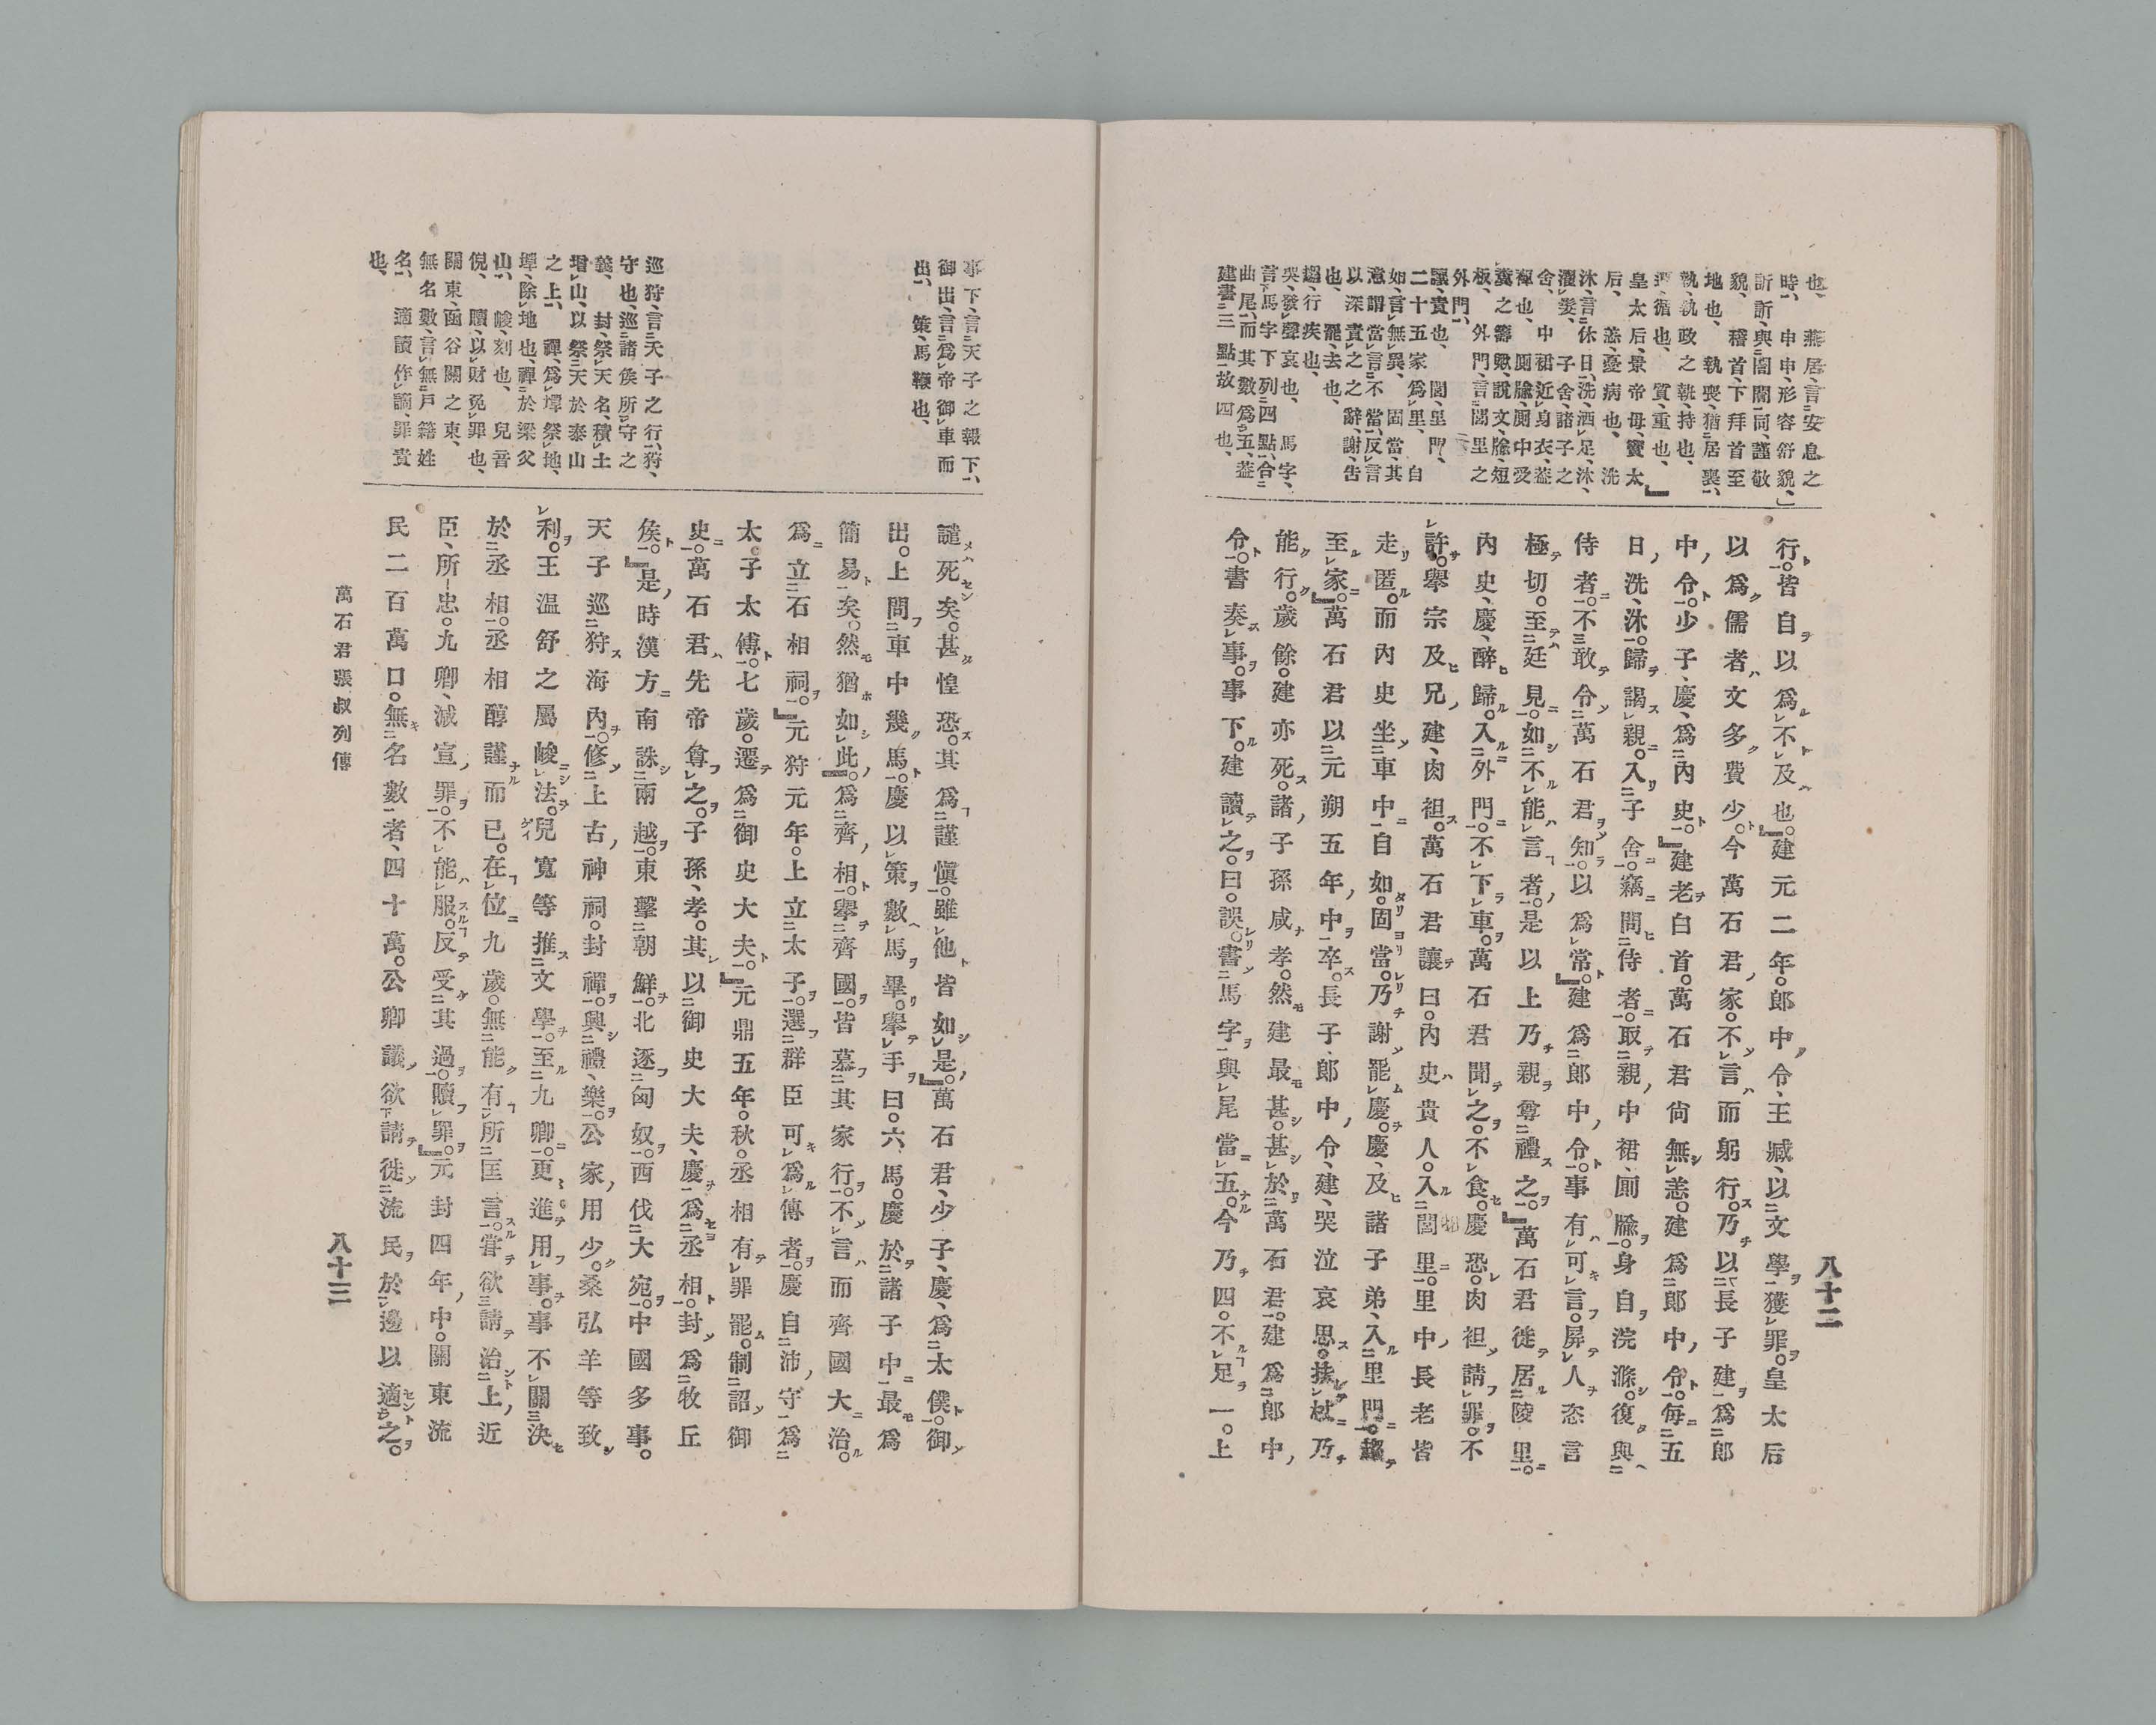 八十二
也、燕居、言安息之
時、申申、形容舒貌、」
訢訢、與誾誾同、謹敬
貌、稽首、下拜首至
地也、執喪、猶居喪、
執、執政之執、持也、
遵、循也、質、重也、」
皇太后、景帝母、竇太
后、恙、憂病也、洗
沐、言休日、洗、洒足、沐、
濯髮、子舍、諸子之
舍、中裙近身衣、蓋
褌也、厠牏、厠中受
糞之籌歟、說文、牏、短
板、外門、言閭里之
外門、
讓、責也、閭、里門、
二十五家爲里、自
如、言無異、固當、其
意謂當、言不當、反言
以深責之之辭、謝、告
也、罷、去也、
趨、行疾也、
哭、發聲哀也、馬字、
言馬字下列四點、合
曲尾、而其數爲五、蓋
建書三點、故四也、
行。皆自以爲不及也。』建元二年。郎中令、王臧、以文學獲罪。皇太后
以爲儒者文多費少。今萬石君家。不言而躬行。乃以長子建爲郎
中令。少子、慶、爲內史。』建老白首。萬石君尙無恙。建爲郎中令。每五
日洗、沐。歸謁親。入子舍。竊問侍者。取親中裙、厠牏。身自浣滌。復與
侍者。不敢令萬石君知。以爲常。』建爲郎中令。事有可言。屏人恣言
極切。至廷見。如不能言者。是以上乃親尊禮之。』萬石君徙居陵里。
內史、慶、醉歸。入外門。不下車。萬石君聞之。不食。慶恐。肉袒請罪。不
許。擧宗及兄建、肉袒。萬石君讓曰。內史貴人。入閭里。里中長老皆
走匿。而內史坐車中自如。固當。乃謝罷慶。慶、及諸子弟、入里門。趨
至家。』萬石君以元朔五年中卒。長子、郎中令、建、哭泣哀思。扶杖乃
能行。歲餘。建亦死。諸子孫咸孝。然建最甚。甚於萬石君。建爲郎中
令。書奏事。事下。建讀之。曰。誤。書馬字與尾當五。今乃四。不足一。上
事下、言天子之報下、
御出、言爲帝御車而
出、策、馬鞭也、
巡狩、言天子之行、狩、
守也、巡諸侯所守之
義、封、祭天名、積土
增山、以祭天於泰山
之上、禪、爲墠祭地、
墠、除地也、禪於梁父
山、峻、刻也、兒音
倪、贖、以財免罪也、
關東、函谷關之東、
無名數、言無戶籍姓
名、適讀作謫、罪責
也、
譴死矣。甚惶恐。其爲謹愼。雖他皆如是。』萬石君、少子、慶、爲太僕。御
出。上問車中幾馬。慶以策數馬畢。擧手曰。六、馬。慶於諸子中最爲
簡易矣。然猶如此。』爲齊相。擧齊國。皆慕其家行。不言而齊國大治。
爲立石相祠。』元狩元年。上立太子。選群臣可爲傅者。慶自沛守爲
太子太傅。七歲。遷爲御史大夫。』元鼎五年。秋。丞相有罪罷。制詔御
史。萬石君先帝尊之。子孫、孝。其以御史大夫、慶、爲丞相。封爲牧丘
侯。』是時漢方南誅兩越。東擊朝鮮。北逐匈奴。西伐大宛。中國多事。
天子巡狩海內。修上古神祠。封禪。興禮、樂。公家用少。桑弘羊等致
利。王溫舒之屬峻法。兒寬等推文學。至九卿。更進用事。事不關決
於丞相。丞相醇謹而已。在位九歲。無能有所匡言。嘗欲請治上近
臣、所忠。九卿、減宣罪。不能服。反受其過。贖罪。』元封四年中。關東流
民二百萬口。無名數者、四十萬。公卿議欲請徙流民於邊以適之。
萬石君張叔列傳
八十三